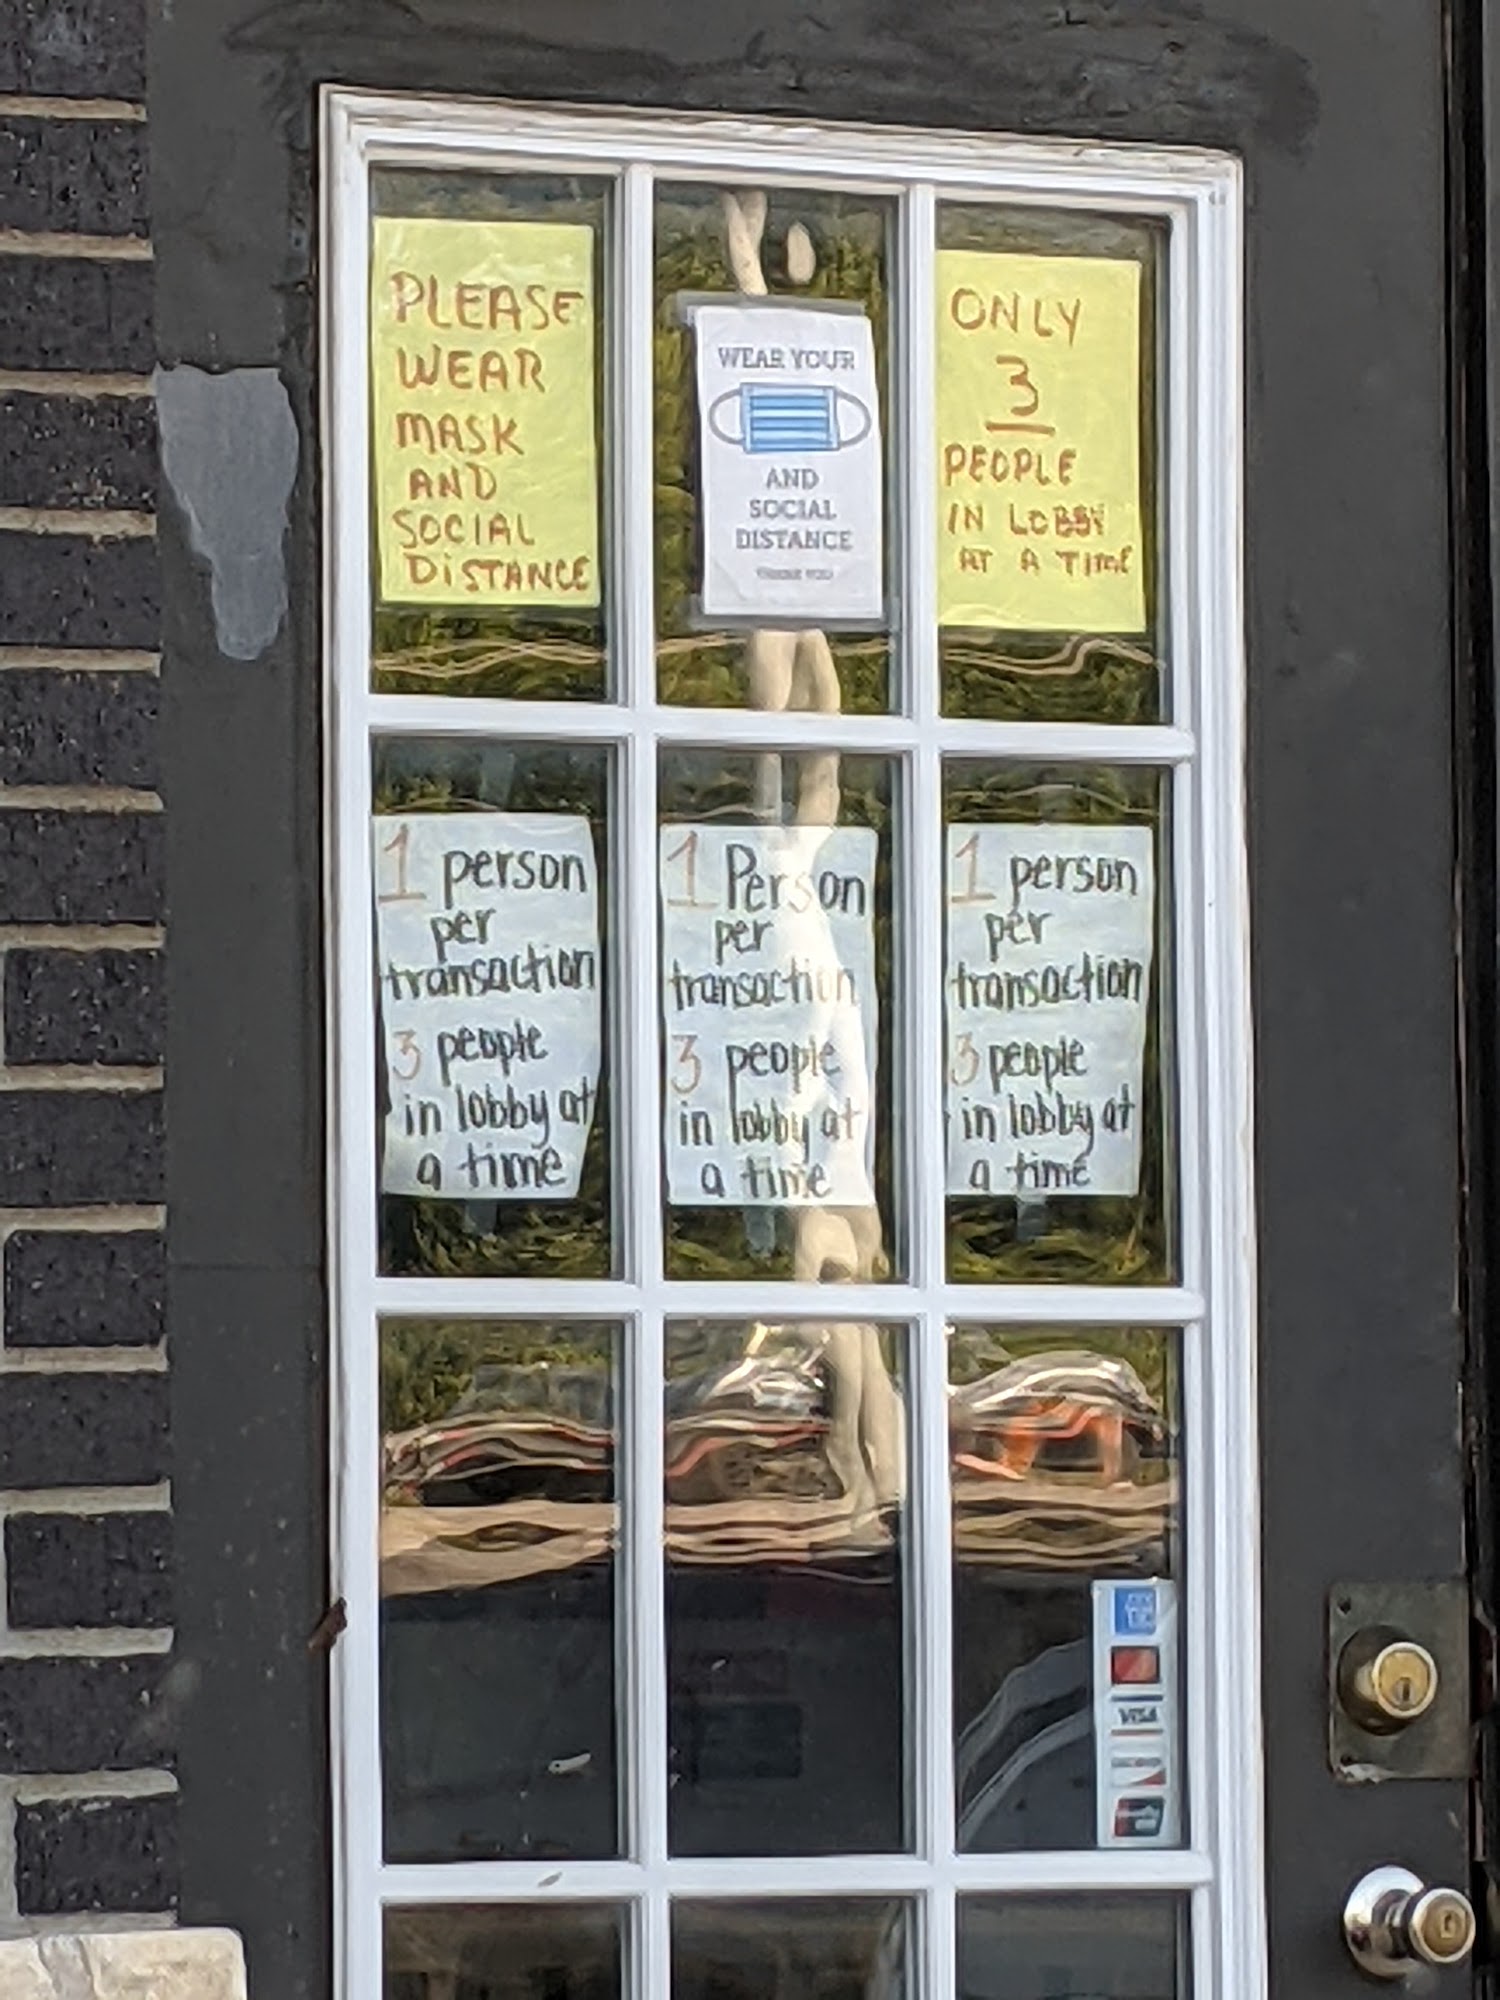 PLEASE
WEAR
MASK
AND
SOCIAL
DISTANCE
WEAR YOUR
AND
SOCIAL
DISTANCE
THANK YOU
ONLY
3
PEOPLE
IN LOBBY
AT A TIME
1 person
per
transaction
3 people
in lobby at
a time
1 Person
per
transaction
3 people
in lobby at
a time
1 person
per
transaction
3 people
in lobby at
a time
VISA